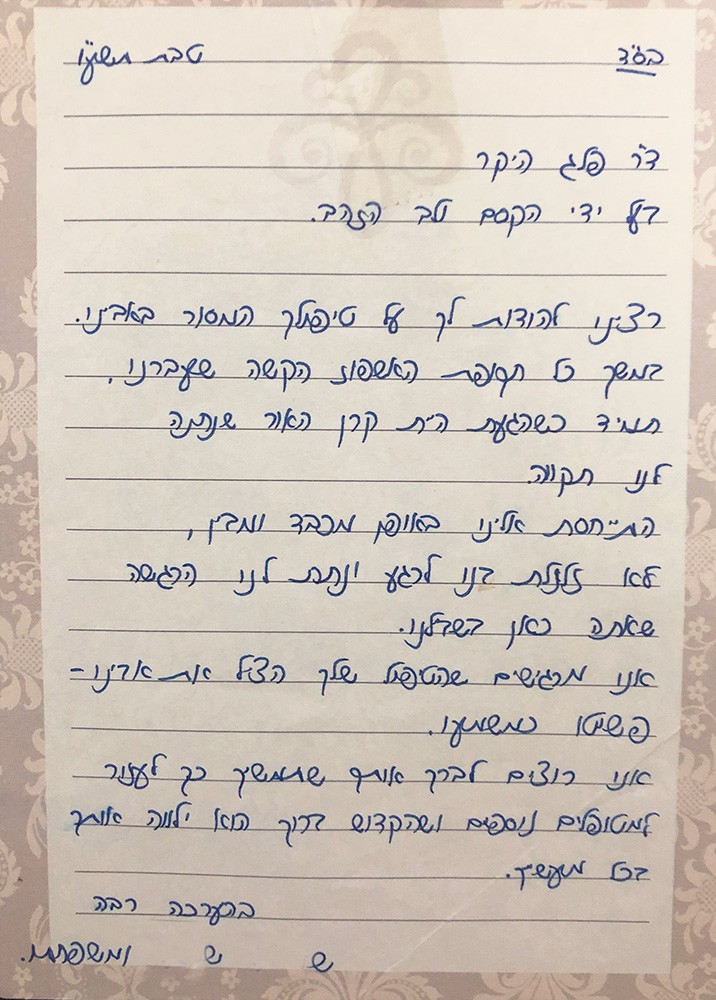 בס״ד טבת תשע״ו
ד״ר פלג היקר
בעל ידי הקסם ולב הזהב.
רצינו להודות לך על טיפולך המסור באבינו.
במשך כל תקופת האשפוז הקשה שעברנו,
תמיד כשהגעת היית קרן האור שנתנה
לנו תקווה.
התייחסת אלינו באופן מכבד ומבין,
לא זלזלת בנו לרגע ונתת לנו הרגשה
שאתה כאן בשבילנו.
אנו מרגישים שהטיפול שלך הציל את אבינו -
פשוטו כמשמעו.
אנו רוצים לברך אותך שתמשיך כך לעזור
למטופלים נוספים ושהקדוש ברוך הוא ילווה אותך
בכל מעשיך.
בהערכה רבה
ש ש ומשפחתו.